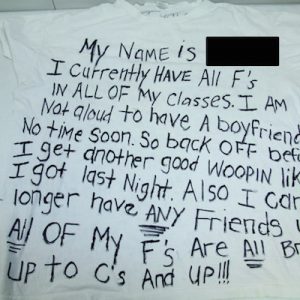 My Name is
I Currently HAVE All F's
IN ALL OF My classes. I AM
Not aloud to have A boyfriend
No time Soon. So back OFF
I get another good WOOPIN
I got last Night. Also I
longer have ANY Friends
All OF My F's Are All
UP to C's And UP!!!